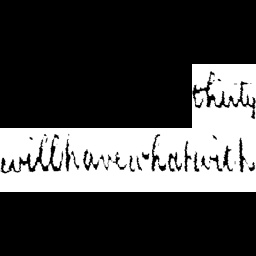 thirty
will have what with